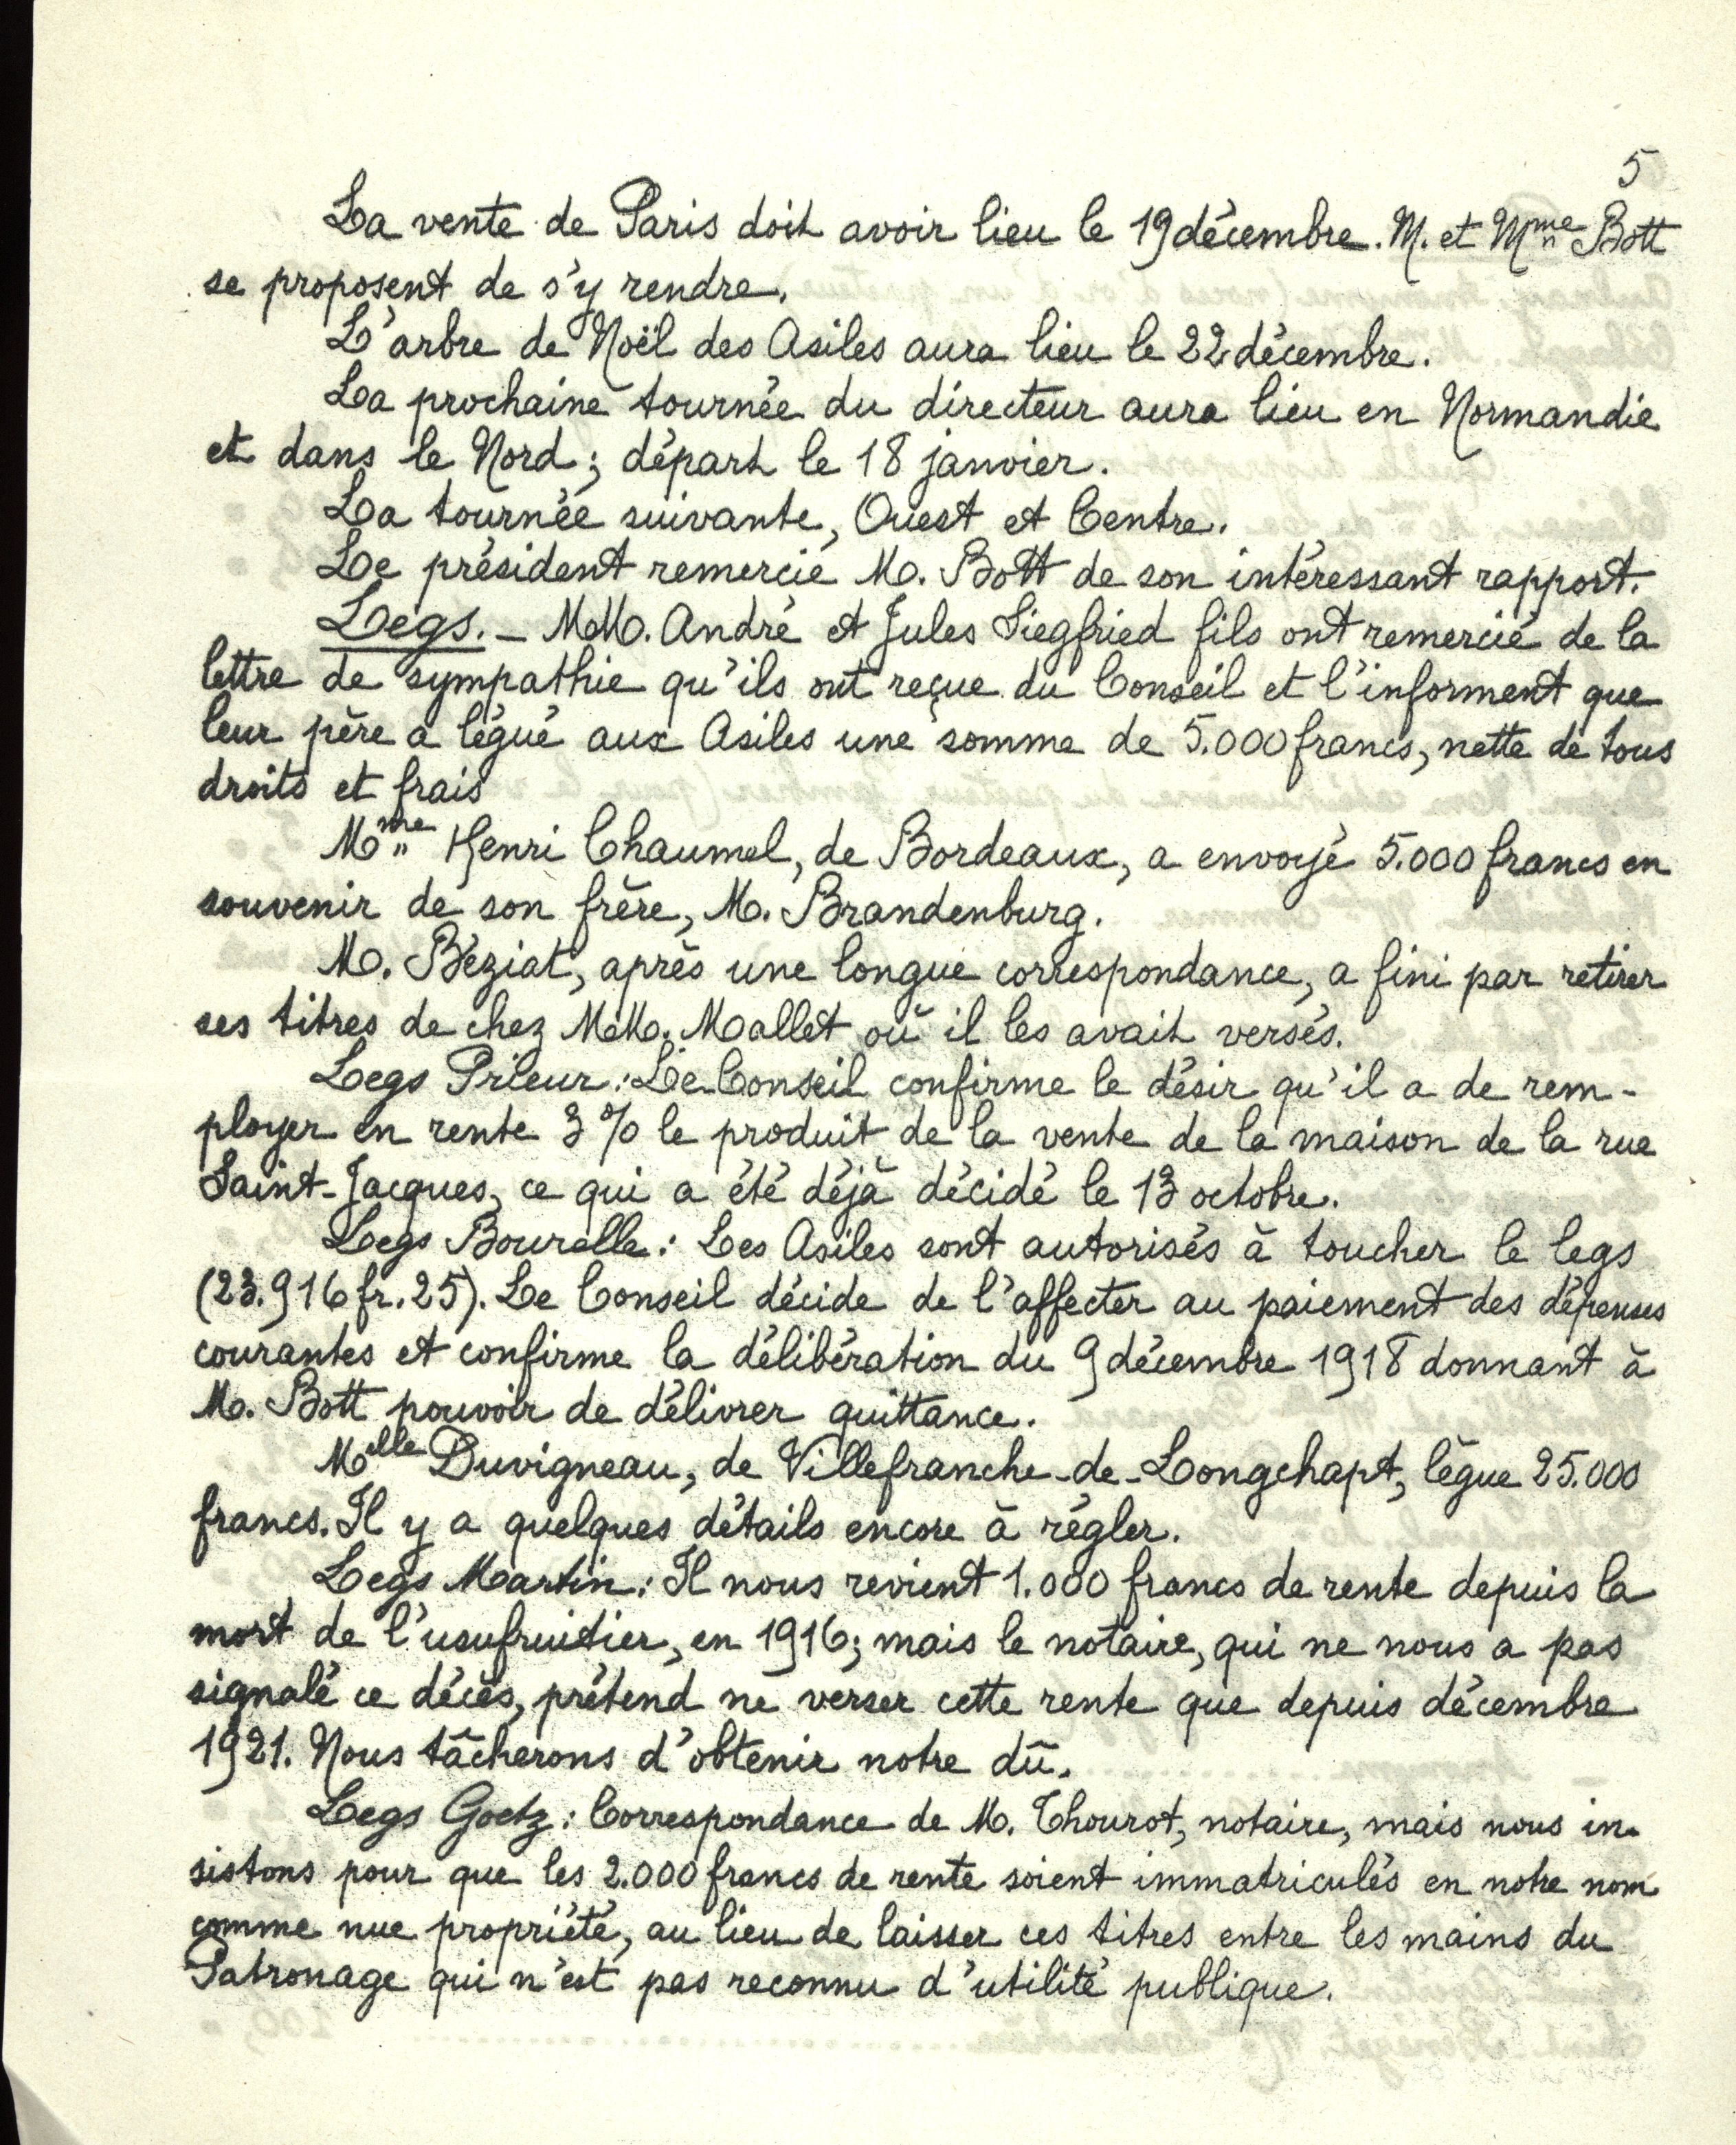 5
La vente de Paris doit avoir lieu le 19 décembre. M. et Mme Bott
se proposent de s'y rendre.
L'arbre de Noël des Asiles aura lieu le 22 décembre.
La prochaine tournée du directeur aura lieu en Normandie
et dans le Nord ; départ le 18 janvier.
La tournée suivante, Ouest et Centre.
Le président remercie M. Bott de son intéressant rapport.
Legs. – MM. André et Jules Siegfried fils ont remercié de la
lettre de sympathie qu'ils ont reçue du Conseil et l'informent que
leur père a légué aux Asiles une somme de 5.000 francs, nette de tous
droits et frais
Mme Henri Chaumel, de Bordeaux, a envoyé 5.000 francs en
souvenir de son frère, M. Brandenburg.
M. Béziat, après une longue correspondance, a fini par retirer
ses titres de chez MM. Mallet où il les avait versés.
Legs Prieur : Le Conseil confirme le désir qu'il a de rem-
ployer en rente 3 % le produit de la vente de la maison de la rue
Saint-Jacques, ce qui a été déjà décidé le 13 octobre.
Legs Bourelle : Les Asiles sont autorisés à toucher le legs
(23.916 fr. 25). Le Conseil décide de l'affecter au paiement des dépenses
courantes et confirme la délibération du 9 décembre 1918 donnant à
M. Bott pouvoir de délivrer quittance.
Melle Duvigneau, de Villefranche-de-Longchapt, lègue 25.000
francs. Il y a quelques détails encore à régler.
Legs Martin : Il nous revient 1.000 francs de rente depuis la
mort de l'usufruitier, en 1916 ; mais le notaire, qui ne nous a pas
signalé ce décès, prétend ne verser cette rente que depuis décembre
1921. Nous tâcherons d'obtenir notre dû.
Legs Goetz : Correspondance de M. Thourot, notaire, mais nous in-
sistons pour que les 2.000 francs de rente soient immatriculés en notre nom
comme nue propriété, au lieu de laisser ces titres entre les mains du
Patronage qui n'est pas reconnu d'utilité publique.